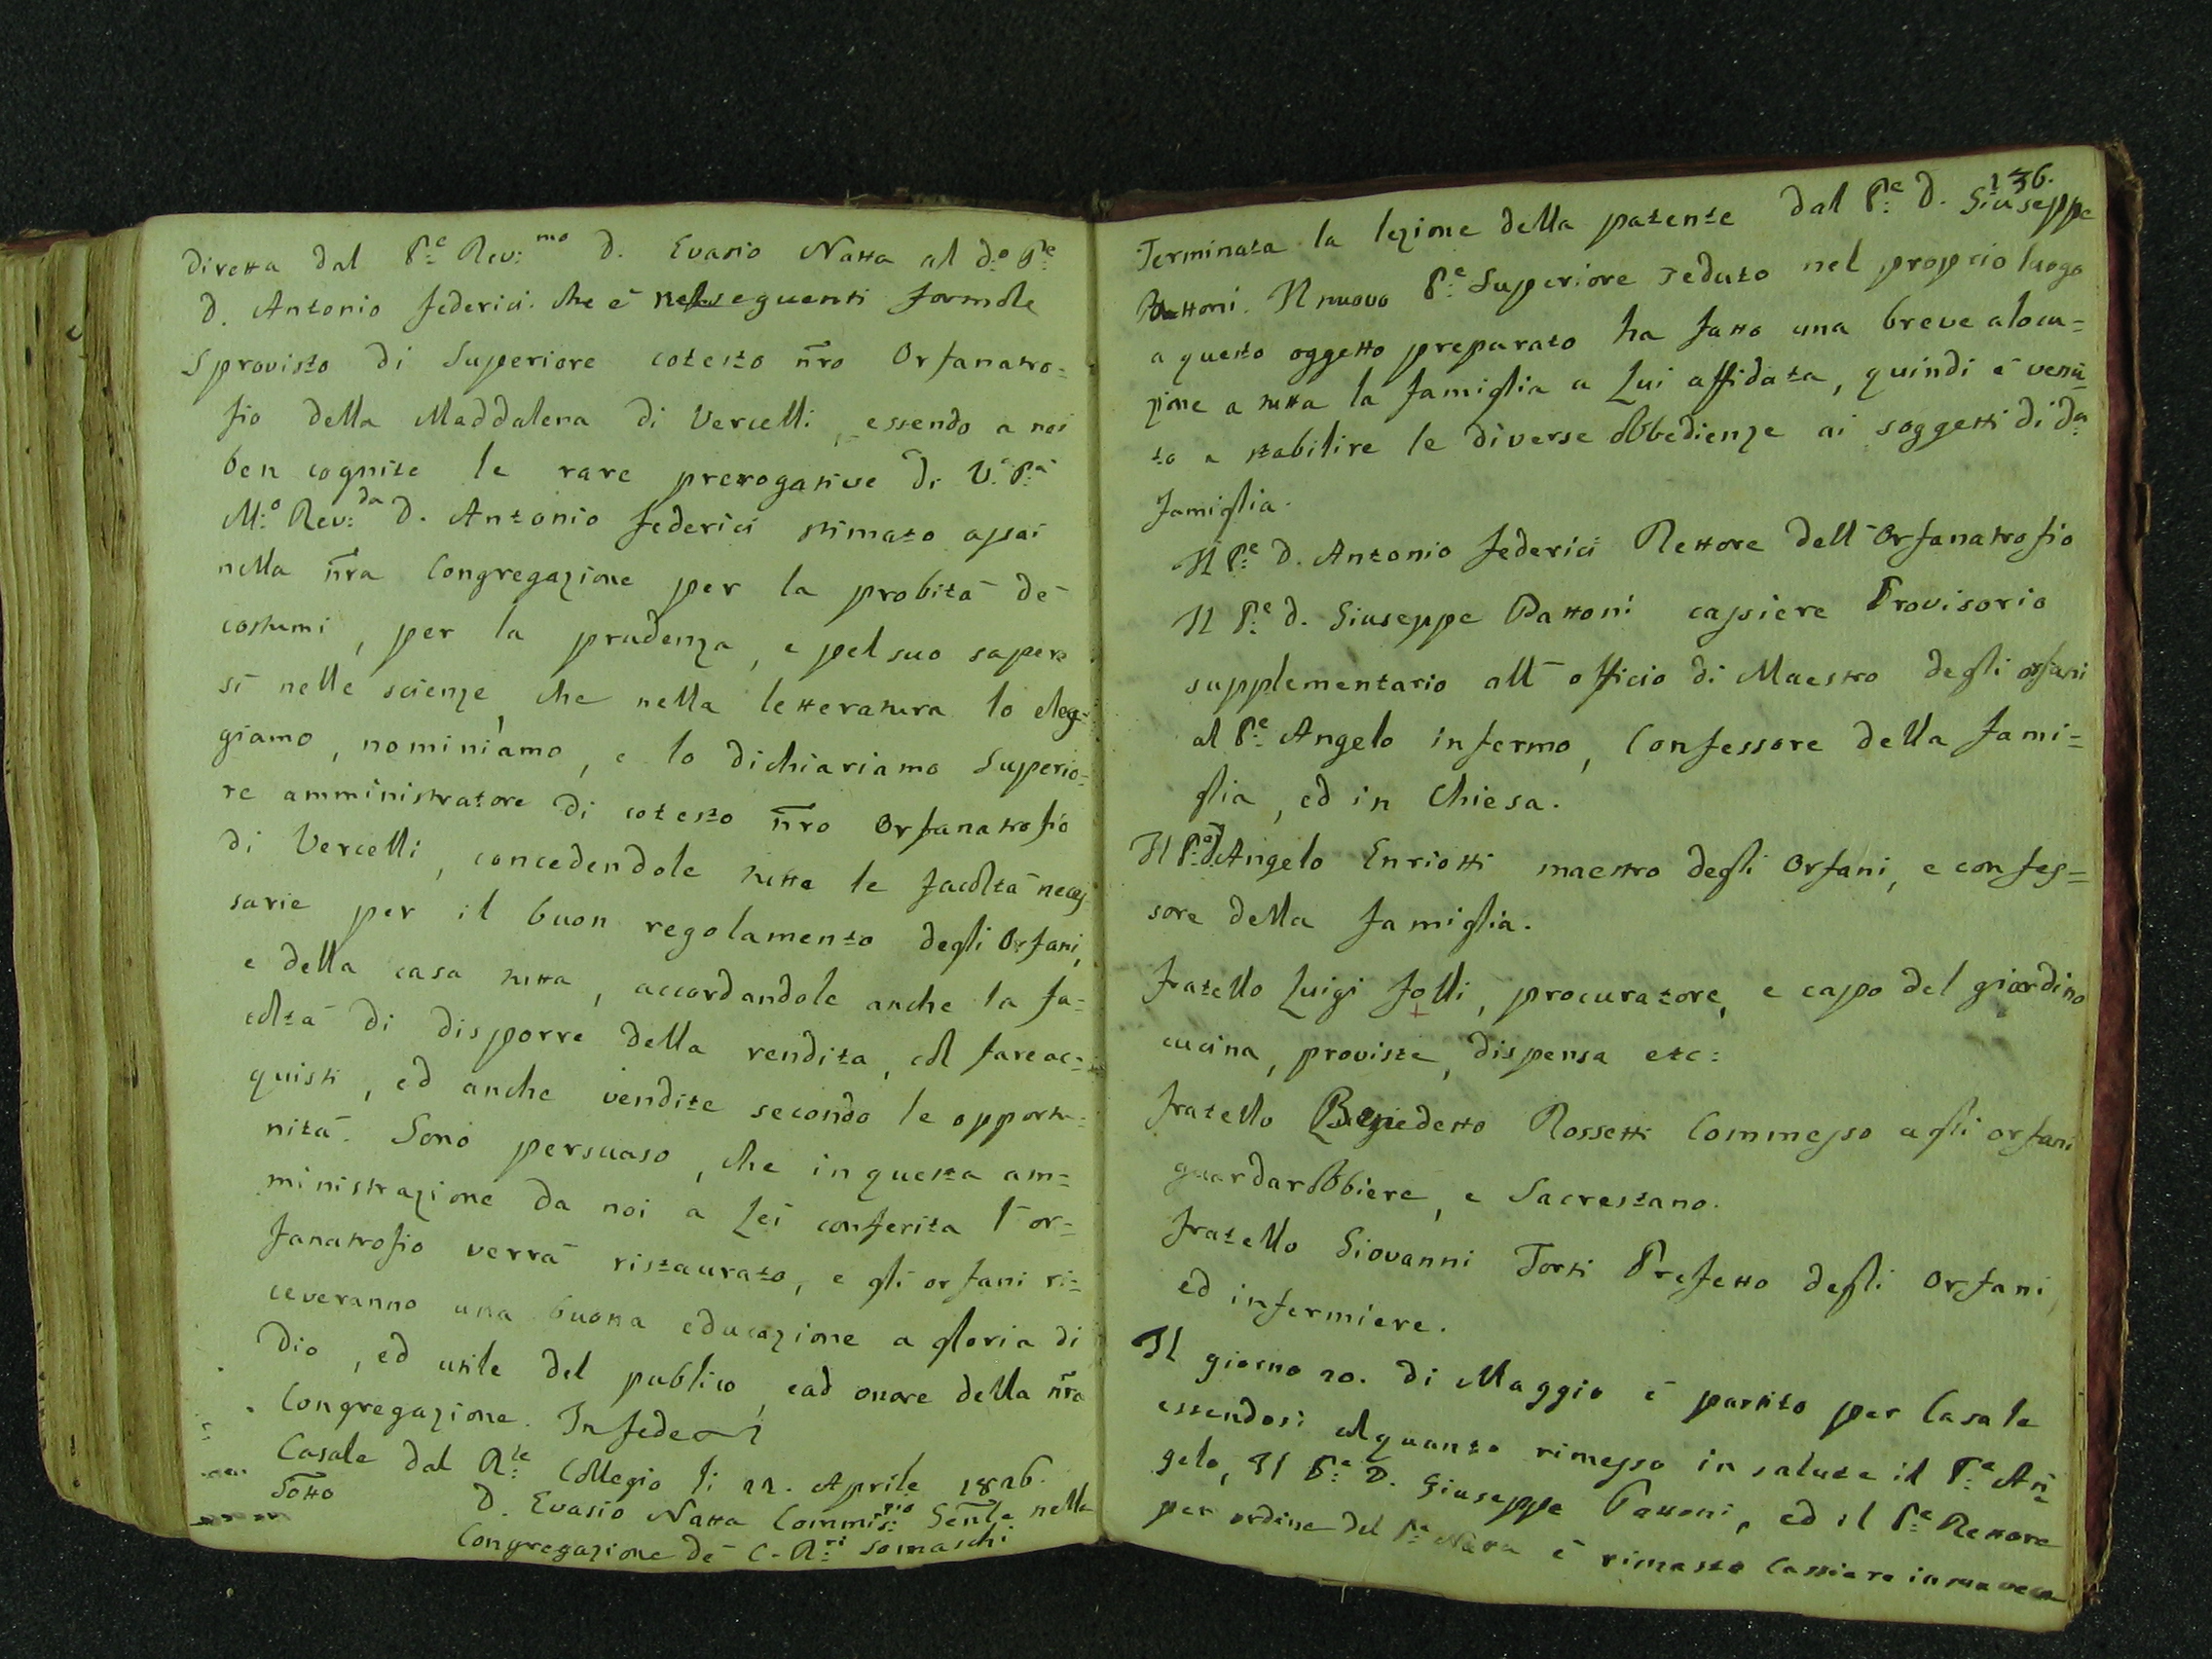 diretta dal P:e Rev:mo D. Evasio Natta al d:o P:re
D. Antonio Federici. che è nelle seguenti formole
Sprovisto di Superiore cotesto nr̃o Orfanatro=
fio della Maddalena di Vercelli, essendo a noi
ben cognite le rare prerogative di V:a P:a
M:o Rev:da D. Antonio Federici stimato assai
nella nr̃a Congregazione per la probità de'
costumi, per la prudenza, e pel suo sapere
sì nelle scienze, che nella letteratura lo eleg=
giamo, nominiamo, e lo dichiariamo Superio=
re amministratore di cotesto nr̃o Orfanatrofio
di Vercelli, concedendole tutte le facoltà neces
sarie per il buon regolamento degli Orfani,
e della casa tutta, accordandole anche la fa=
coltà di disporre della rendita, col fare ac=
quisti, ed anche vendite secondo le opportu=
nità. Sono persuaso, che in questa am=
ministrazione da noi a Lei conferita l'or=
fanatrofio verrà ristaurato, e gli orfani ri=
ceveranno una buona educazione a gloria di
Dio, ed utile del publico, e ad onore della nr̃a
Congregazione. In fede
Casale dal R:le Collegio li 22. Aprile 1826.
Sotto D. Evasio Natta Commis:rio Gen̄le nella
Congregazione de' C. R:ri Somaschi
136.
Terminata la lezione della patente dal P:e D. Giuseppe
Pattoni. Il nuovo P:e Superiore seduto nel proprio luogo
a questo oggetto preparato ha fatto una breve alocu=
zione a tutta la famiglia a Lui affidata, quindi è venu=
to a stabilire le diverse obbedienze ai soggetti di d:a
famiglia.
Il P:e D. Antonio Federici Rettore dell'Orfanatrofio
Il P:e D. Giuseppe Pattoni cassiere Provisorio
supplementario all'officio di Maestro degli orfani
al P:e Angelo infermo, Confessore della fami=
glia, ed in Chiesa.
Il P:e D. Angelo Enriotti maestro degli Orfani, e confes=
sore della famiglia.
Fratello Luigi Jolli, procuratore, e capo del giardino
cucina, proviste, dispensa etc:
Fratello Benedetto Rossetti Commesso agli orfani
guardarobbiere, e Sacrestano.
Fratello Giovanni Torti Prefetto degli Orfani
ed infermiere.
Il giorno 20. di Maggio è partito per Casale
essendosi alquanto rimesso in salute il P:e An=
gelo, Il P:e D. Giuseppe Pattoni, ed il P:e Rettore
per ordine del P:e Natta è rimasto Cassiere in sua vece